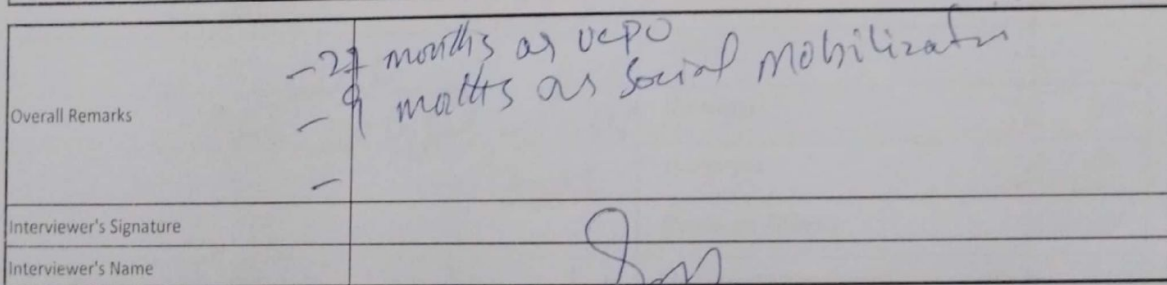 Overall Remarks
- 27 months as UCPO
- 9 months as Social Mobilizator
-
Interviewer's Signature
Interviewer's Name